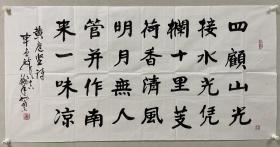 四顧山光
接水光凭
欄十里芰
荷香清風
明月無人
管并作南
来一味凉
黄庭堅詩